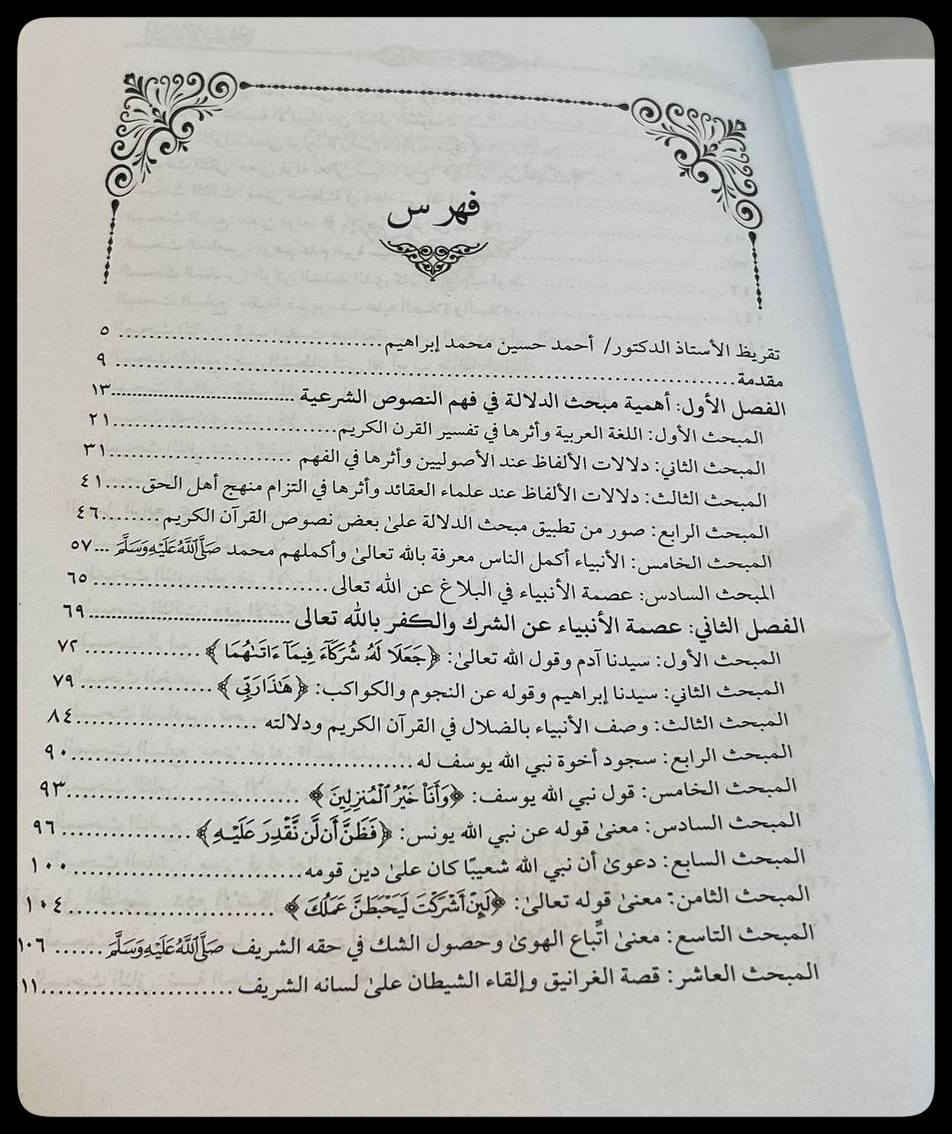 فهرس
تقريظ الأستاذ الدكتور/ أحمد حسين محمد إبراهيم ٥
مقدمة ٩
الفصل الأول: أهمية مبحث الدلالة في فهم النصوص الشرعية ١٣
المبحث الأول: اللغة العربية وأثرها في تفسير القرن الكريم ٢١
المبحث الثاني: دلالات الألفاظ عند الأصوليين وأثرها في الفهم ٣١
المبحث الثالث: دلالات الألفاظ عند علماء العقائد وأثرها في التزام منهج أهل الحق ٤١
المبحث الرابع: صور من تطبيق مبحث الدلالة علىٰ بعض نصوص القرآن الكريم ٤٦
المبحث الخامس: الأنبياء أكمل الناس معرفة بالله تعالىٰ وأكملهم محمد صَلَّىٰ اللَّهُ عَلَيْهِ وَسَلَّمَ ٥٧
المبحث السادس: عصمة الأنبياء في البلاغ عن الله تعالى ٦٥
الفصل الثاني: عصمة الأنبياء عن الشرك والكفر بالله تعالى ٦٩
المبحث الأول: سيدنا آدم وقول الله تعالىٰ: ﴿جَعَلَا لَهُۥ شُرَكَآءَ فِيمَآ ءَاتَىٰهُمَا﴾ ٧٢
المبحث الثاني: سيدنا إبراهيم وقوله عن النجوم والكواكب: ﴿هَٰذَا رَبِّي﴾ ٧٩
المبحث الثالث: وصف الأنبياء بالضلال في القرآن الكريم ودلالته ٨٤
المبحث الرابع: سجود أخوة نبي الله يوسف له ٩٠
المبحث الخامس: قول نبي الله يوسف: ﴿وَأَنَا۠ خَيْرُ ٱلْمُنزِلِينَ﴾ ٩٣
المبحث السادس: معنىٰ قوله عن نبي الله يونس: ﴿فَظَنَّ أَن لَّن نَّقْدِرَ عَلَيْهِ﴾ ٩٦
المبحث السابع: دعوىٰ أن نبي الله شعيبًا كان علىٰ دين قومه ١٠٠
المبحث الثامن: معنىٰ قوله تعالىٰ: ﴿لَئِنْ أَشْرَكْتَ لَيَحْبَطَنَّ عَمَلُكَ﴾ ١٠٤
المبحث التاسع: معنىٰ اتِّباع الهوىٰ وحصول الشك في حقه الشريف صَلَّىٰ اللَّهُ عَلَيْهِ وَسَلَّمَ ١٠٦
المبحث العاشر: قصة الغرانيق وإلقاء الشيطان علىٰ لسانه الشريف